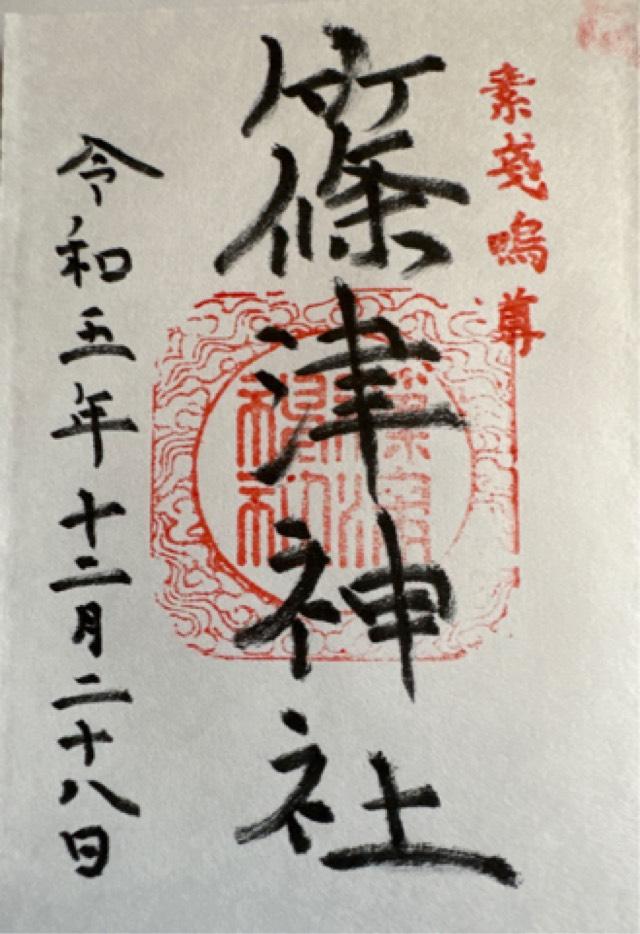 素戔嗚尊
篠津神社
令和五年十二月二十八日